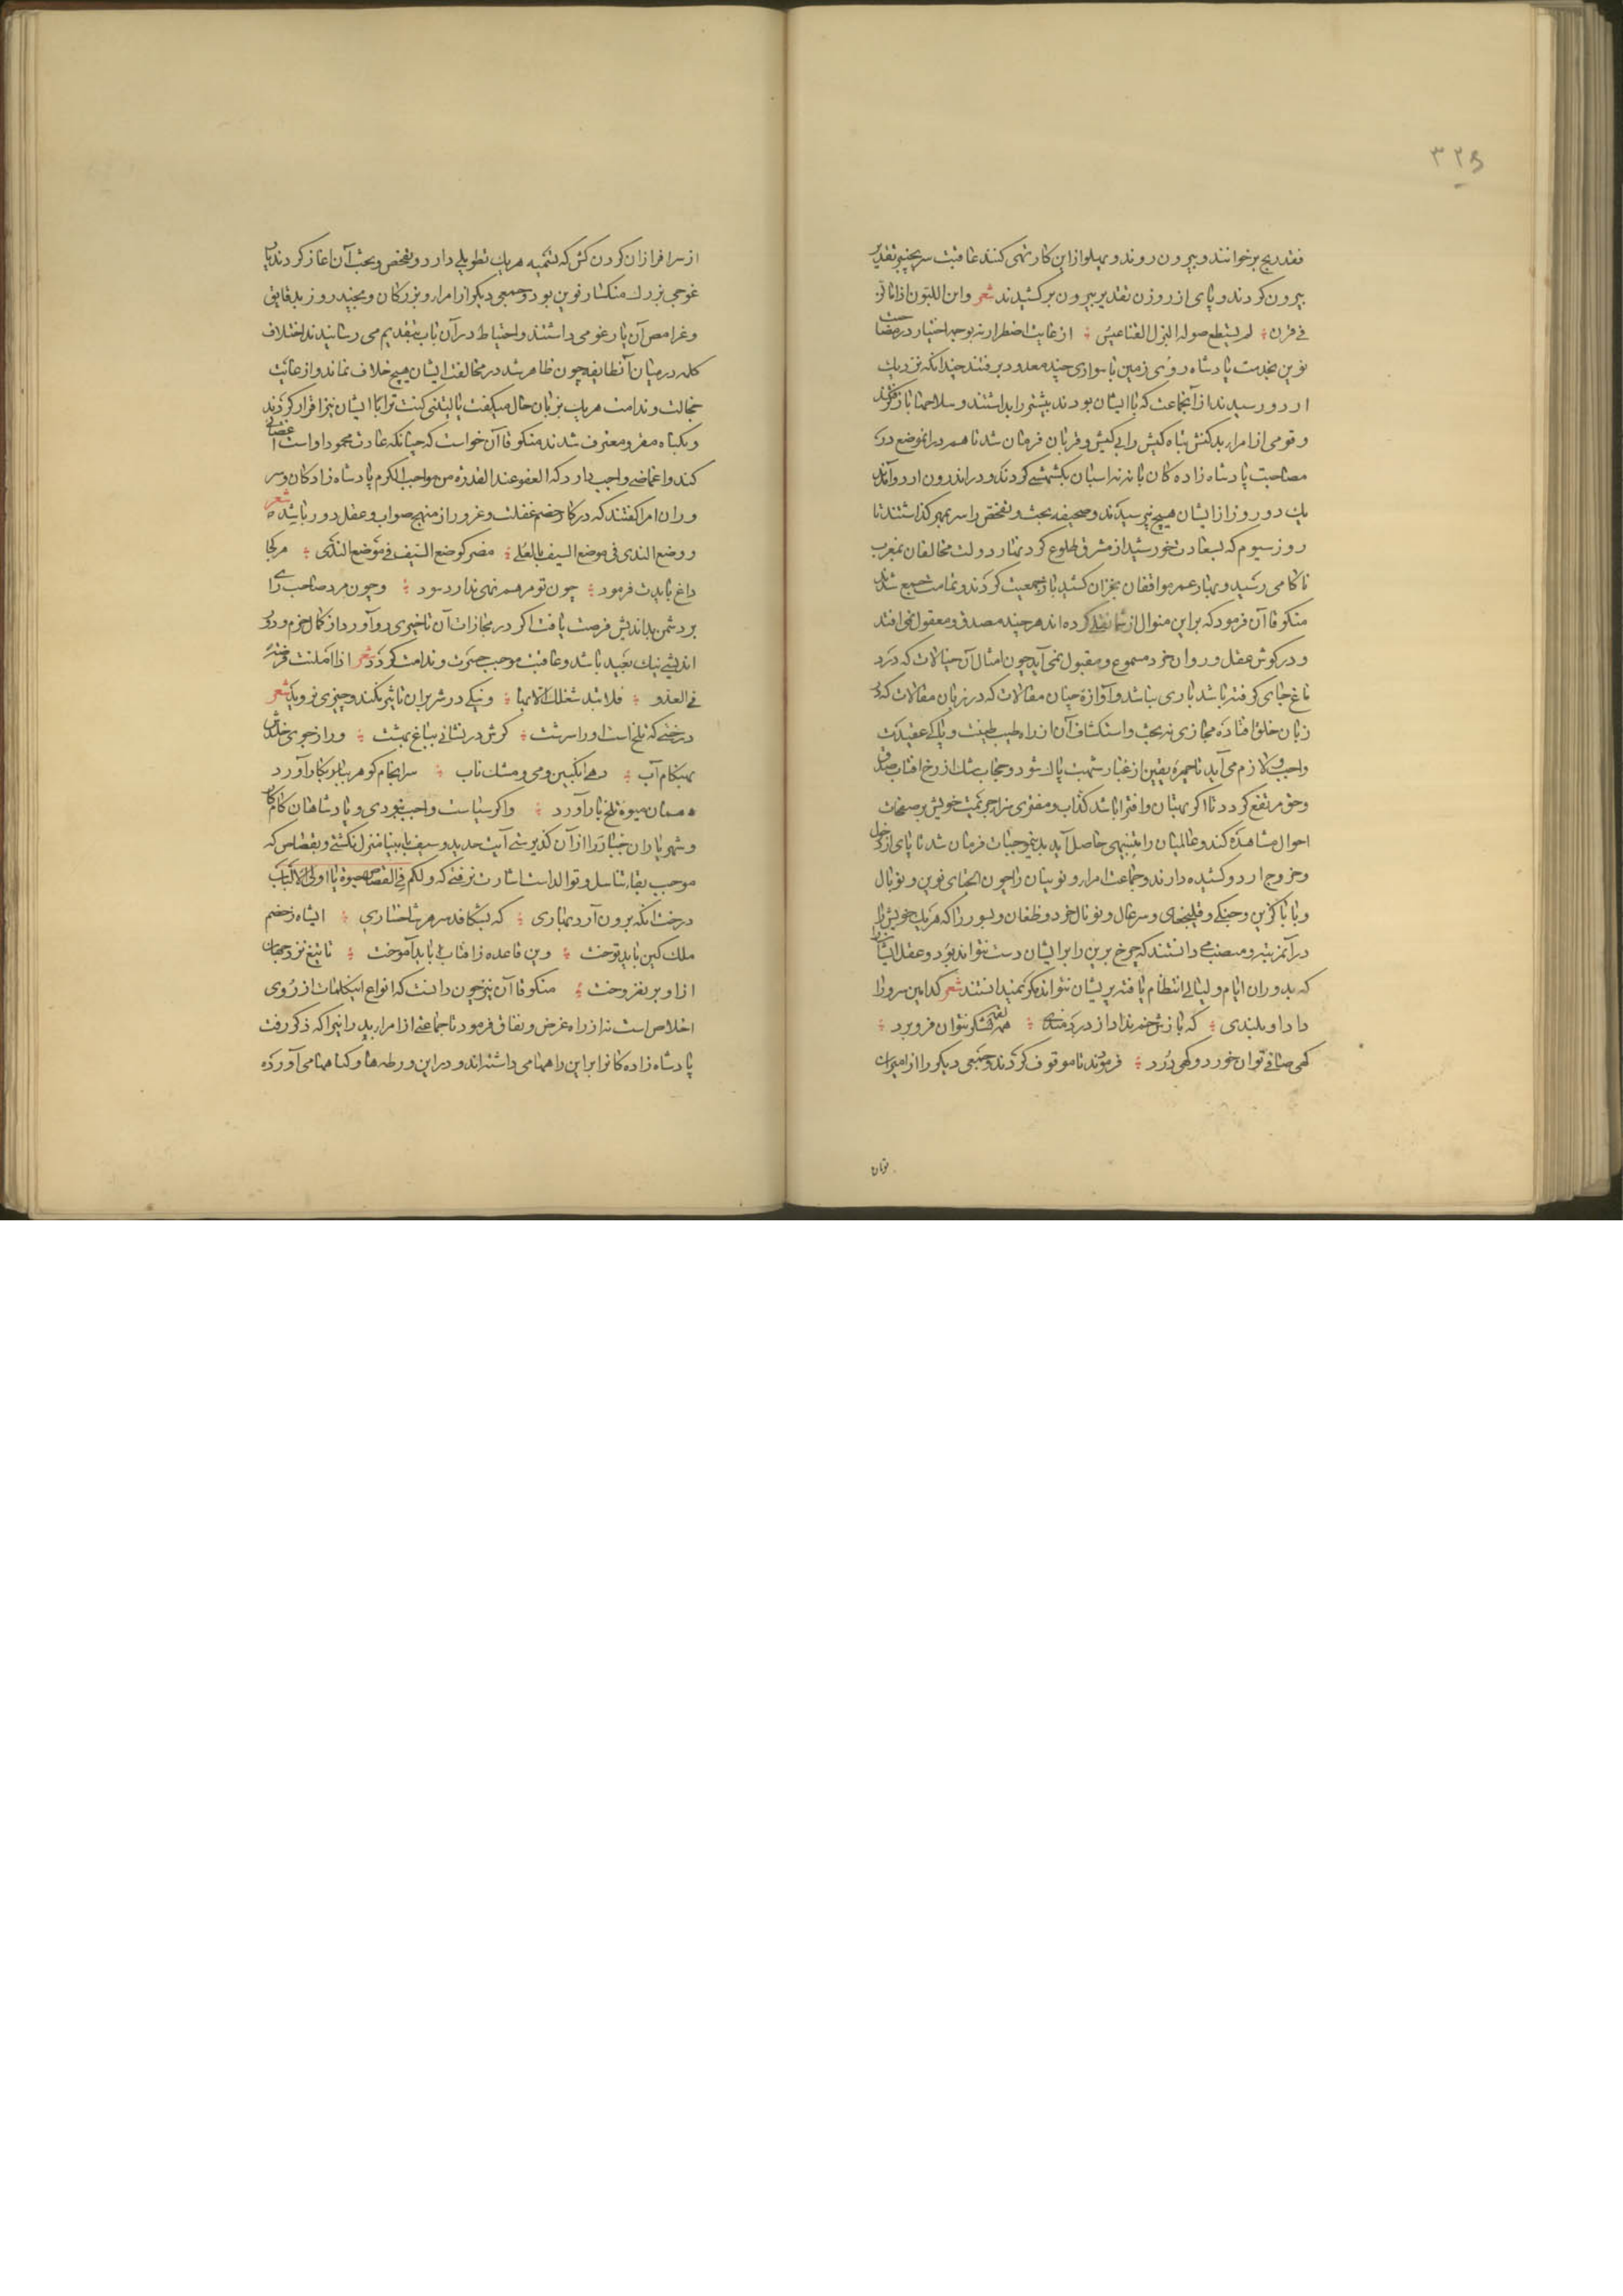 ۳۲۵
فقد ریح برخوانند و بیرون روند و پهلو ازین کار تهی کنند عاقبت سر بچنبر تقدیر
بیرون کردند و پای از روزن تقدیر بیرون برکشیدند شعر وابن اللبون اذا مالز
فی قرن لم یستطع صولة البزل القناعیس از غایت اضطرار نه بوجه اختیار در مصاحبت
نوین بخدمت پادشاه روی زمین با سواری چند معدود برفتند چندانکه نزدیک
اردو رسیدند از آنجماعت که با ایشان بودند بیشتر را بداشتند و سلاحها باز کردند
و قومی از امراء بدکنش تباه کیش را بی کیش و قربان فرمان شد تا هم در انموضع در
مصاحبت پادشاه زادگان بانه نه اسبان بکشمشی کردند و در اندرون اردو آمدند
یک دو روز از ایشان هیچ نپرسیدند و صحیفه بحث و تفحص را سر بمهر گذاشتند تا
روز سیوم که بسعادت خورشید از مشرق طلوع کرد نهار دولت مخالفان بمغرب
ناکامی رسید و بهار عمر موافقان بخزان کشید باز جمعیت کردند و تمامت جمع شدند
منکوقاآن فرمود که براین منوال از شما نقلی کرده اند هرچند مصدق و معقول نمی افتد
و در کوش عقل و روان خرد مسموع و مقبول نمی آید چون امثال آن خیالات که در
باغ جای گرفته باشد بازی نباشد و آوازه چنان مقالات که در زبان مقالات که در
زبان خلق افتاده مجازی نه بحث و استکشاف آن از راه طیب طینت و پاکی عقیدت
واجب و لازم می آید تا چهره یقین از غبار شبهت پاک شود و حجاب شک از رخ افتاب صدق
و حق مرتفع کردد تا اکر بهتان و افترا باشد کذاب و مفتری سزا جریمت خویش بر صفحات
احوال مشاهده کند و عالمیان را تنبیهی حاصل آید بدین موجبات فرمان شد تا پای از دخول
و خروج اردو کشیده دارند و جماعت امراء و نوینان را چون الجتای نوین و نوتال
و تاناکرین و جنکی و قلیجغای و سرغان و نوتال خرد و طغان و یسور را که هر یک خویش را
در آن مرتبه و منصب می دانستند که چرخ برین را بر ایشان دست نتواند بود و عقد ایشان را
که بدوران ایام و لیالی انتظام یافته پریشان نتواند مکر نمیدانستند شعر کدامین سرو را
داد او بلندی که بازش خم نداد از دردمندی همه لقمه شکر نتوان فرو برد
کهی صافی توان خورد و کهی دُرد فرمودند تا موقوف کردند و جمعی دیکر را از امیران
تومان
از سرافرازان کردن کش که تسمیه هر یک تطویلی دارد و تفحص و بحث آن اغاز کردند یار
غوجی بزرک منکسار نوین بود و جمعی دیکر از امراء و بزرکان و بچند روز بدقایق
و غوامض آن یارغو می داشتند و احتیاط در آن باب بتقدیم می رسانیدند اختلاف
کلمه در میان آنطایفه چون ظاهر شد در مخالفت ایشان هیچ خلاف نماند و از غایت
خجالت و ندامت هر یک بزبان حال میکفت یا لیتنی کنت ترابا ایشان نیز اقرار کردند
و بکناه مقر و معترف شدند منکوقاآن خواست که چنانکه عادت محمود اوست اغضائی
کند و اغماضی واجب دارد که العفو عند القدرة من مواجب الکرم پادشاه زادکان و سر
وران امرا کفتند که در کار خصم غفلت و غرور از منهج صواب و عقل دور باشد شعر
ووضع الندی فی موضع السیف بالعلی مضر کوضع السیف فی موضع الندی هر کجا
داغ بایدت فرمود چون تو مرهم نهی ندارد سود و چون مرد صاحب رای
بر دشمن بداندیش فرصت یافت اکر در مجازات آن تاخیری رو آورد از کمال حزم و دور
اندیشی نیک بعید باشد و عاقبت موجب حسرت و ندامت کردد شعر اذا امکنت فرصة
فی العدو فلا تبد شغلک الا بها و نیکی در شریران تاثیر نکند و چیزی نروید شعر
درختی که تلخ است او را سرشت کرش در نشانی بباغ بهشت ور از جوی خلدش
بهنکام آب دهی انکبین و می و مشک ناب سرانجام کوهر بکار آورد
همان میوه تلخ بار آورد و اکر سیاست واجب نبودی و پادشاهان کامکار
و شهریاران جبار را از آن کذیرستی آیت حدید و سیف با بینات منزل نکشتی و بقصاص که
موجب بقاء تناسل و توالد است اشارت نرفتی که ولکم فی القصاص حیوة یا اولی الالباب
درخت انکه برون آرد بهاری که بشکافد سر هر شاخساری ایشاه زخصم
ملک کین باید توخت وین قاعده ز افتاب باید آموخت تا تیغ نزد جهان
از او بر نفروخت منکوقاآن نیز چون دانست که انواع اینکلمات از روی
اخلاص است نه از راه غرض و نفاق فرمود تا جماعتی از امراء بد رای را که ذکر رفت
پادشاه زادکانرا براین راهها می داشته اند و در این ورطه ها و کناهها می آورده